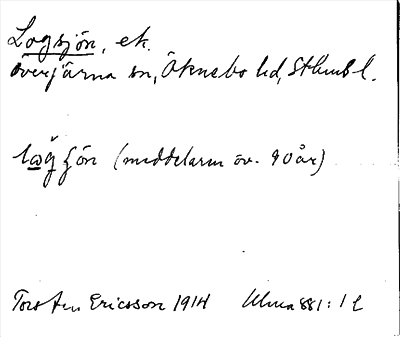 Logsjön, ek.
Överjärna sn, Öknebo hd, Sthms l.
(meddelaren öv. 90 år)
Torsten Ericsson 1914 Ulma 881:1 l